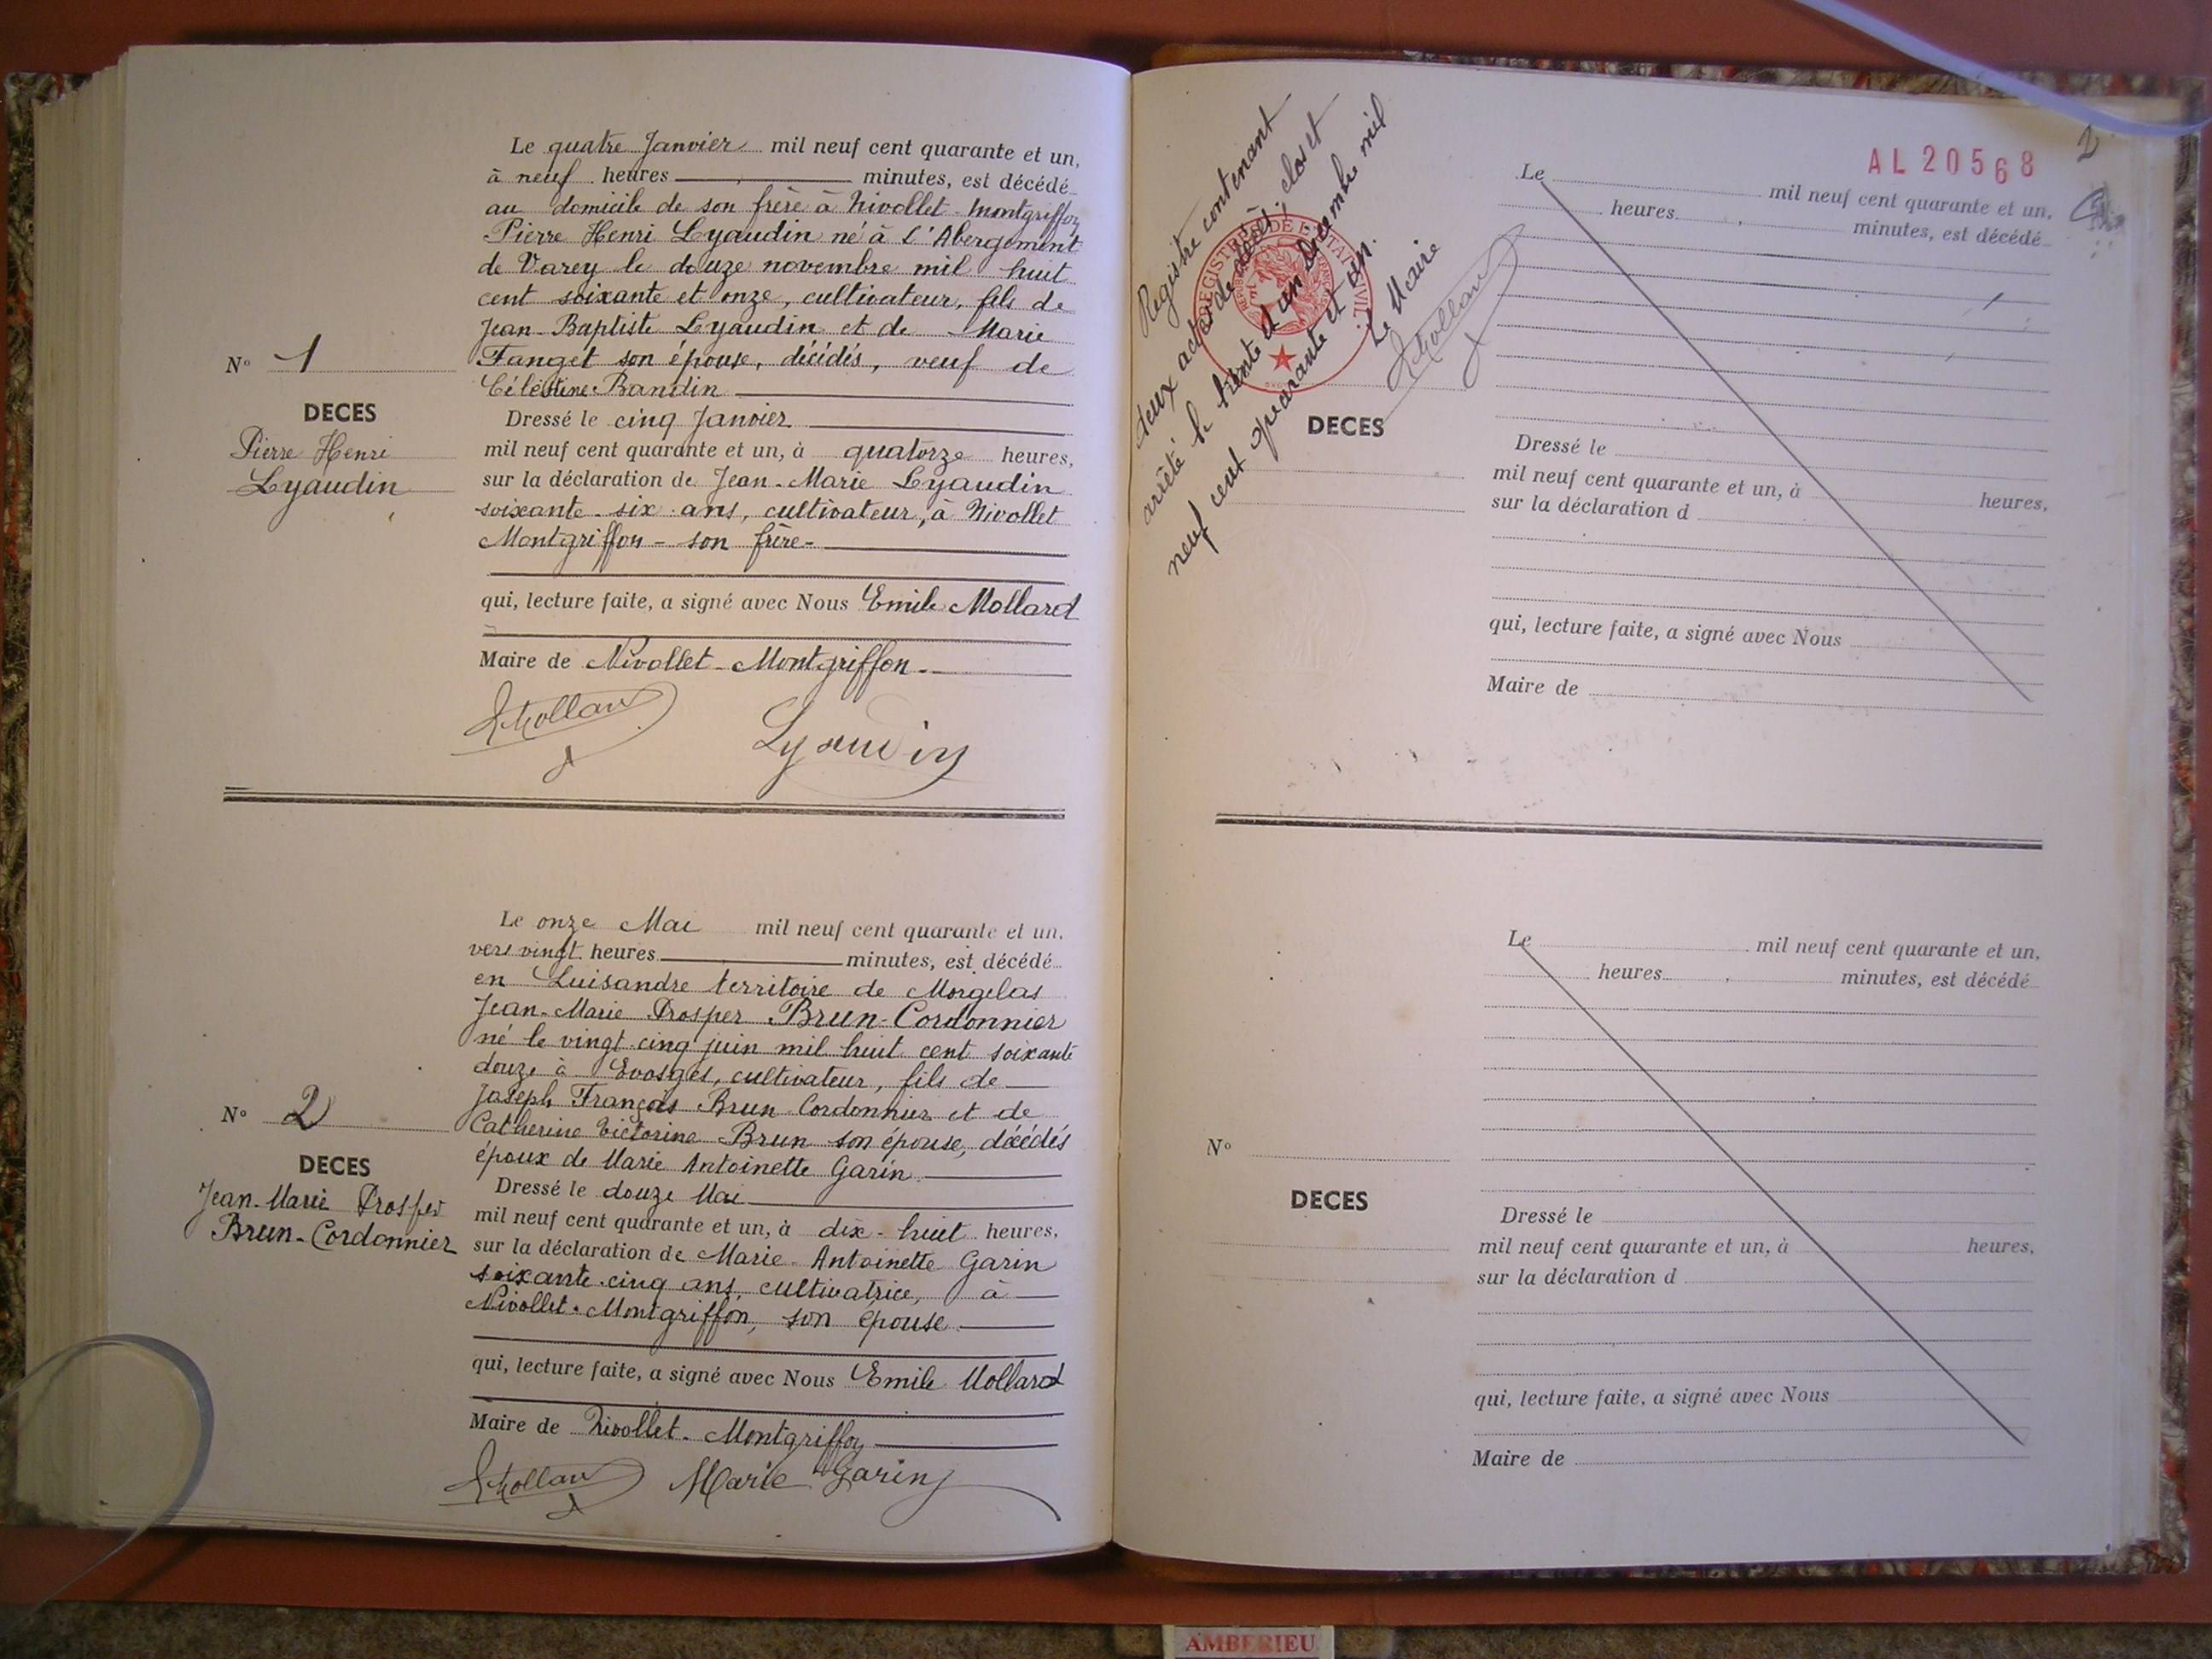 Le quatre Janvier mil neuf cent quarante et un,
à neuf heures minutes, est décédé
au domicile de son frère à Nivollet-Montgriffon
Pierre Henri Lyaudin né à l'Abergement
de Varey le douze novembre mil huit
cent soixante et onze, cultivateur, fils de
Jean-Baptiste Lyaudin et de Marie
Fanget son épouse, décédés, veuf de
Célestine Bandin
N° 1
DECES
Pierre Henri
Lyaudin
Dressé le cinq Janvier
mil neuf cent quarante et un, à quatorze heures,
sur la déclaration de Jean-Marie Lyaudin
soixante-six ans, cultivateur, à Nivollet
Montgriffon - son frère-
qui, lecture faite, a signé avec Nous Emile Mollard
Maire de Nivollet-Montgriffon.
EMollard
Lyaudin
Le onze Mai mil neuf cent quarante et un,
vers vingt heures minutes, est décédé
en Luisandre territoire de Morgelas
Jean-Marie Prosper Brun-Cordonnier
né le vingt-cinq juin mil huit cent soixante
douze à Evosges, cultivateur, fils de
Joseph François Brun-Cordonnier et de
Catherine Victorine Brun son épouse, décédés
époux de Marie Antoinette Garin
N° 2
DECES
Jean-Marie Prosper
Brun-Cordonnier
Dressé le douze Mai
mil neuf cent quarante et un, à dix-huit heures,
sur la déclaration de Marie-Antoinette Garin
soixante-cinq ans, cultivatrice, à
Nivollet-Montgriffon, son épouse
qui, lecture faite, a signé avec Nous Emile Mollard
Maire de Nivollet-Montgriffon
EMollard
Marie Garin
2
AL 20568
Registre contenant
deux actes de décès, clos et
arrêté le trente et un décembre mil
neuf cent quarante et un.
Le Maire
EMollard
REGISTRES DE L'ETAT CIVIL
DECES
Le mil neuf cent quarante et un,
heures, minutes, est décédé
Dressé le
mil neuf cent quarante et un, à heures,
sur la déclaration d
qui, lecture faite, a signé avec Nous
Maire de
Le mil neuf cent quarante et un,
heures, minutes, est décédé
N°
DECES
Dressé le
mil neuf cent quarante et un, à heures,
sur la déclaration d
qui, lecture faite, a signé avec Nous
Maire de
AMBERIEU